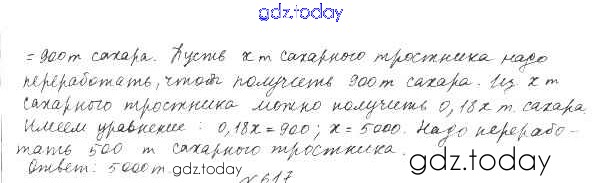 gdz.today
= 900т сахара. Пусть x т сахарного тростника надо
переработать, чтоб получить 900т сахара. Из x т
сахарного тростника можно получить 0,18x т. сахара.
Имеем уравнение: 0,18x = 900; x = 5000. Надо перерабо-
тать 500 т сахарного тростника.
Ответ: 5000т. gdz.today
gdz.today
№617